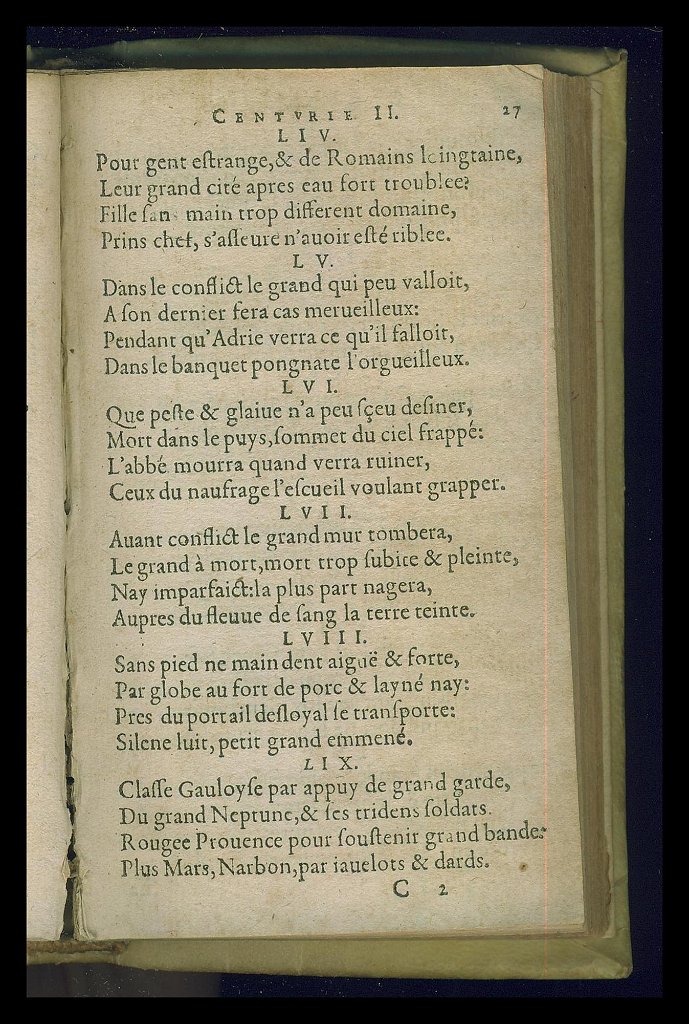 CENTVRIE II. 27
LIV.
Pour gent eſtrange,& de Romains loingtaine,
Leur grand cité apres eau fort troublee:
Fille ſans main trop different domaine,
Prins chef, s'aſſeure n'auoir eſté riblee.
LV.
Dans le conflict le grand qui peu valloit,
A ſon dernier fera cas merueilleux:
Pendant qu'Adrie verra ce qu'il falloit,
Dans le banquet pongnate l'orgueilleux.
LVI.
Que peſte & glaiue n'a peu ſçeu definer,
Mort dans le puys,ſommet du ciel frappé:
L'abbé mourra quand verra ruiner,
Ceux du naufrage l'eſcueil voulant grapper.
LVII.
Auant conflict le grand mur tombera,
Le grand à mort,mort trop ſubite & pleinte,
Nay imparfaict:la plus part nagera,
Aupres du fleuue de ſang la terre teinte.
LVIII.
Sans pied ne main dent aiguë & forte,
Par globe au fort de porc & layné nay:
Pres du portail deſloyal ſe tranſporte:
Silene luit, petit grand emmené.
LIX.
Claſſe Gauloyſe par appuy de grand garde,
Du grand Neptune,& ſes tridens ſoldats.
Rougee Prouence pour ſouſtenir grand bande:
Plus Mars,Narbon,par iauelots & dards.
C 2